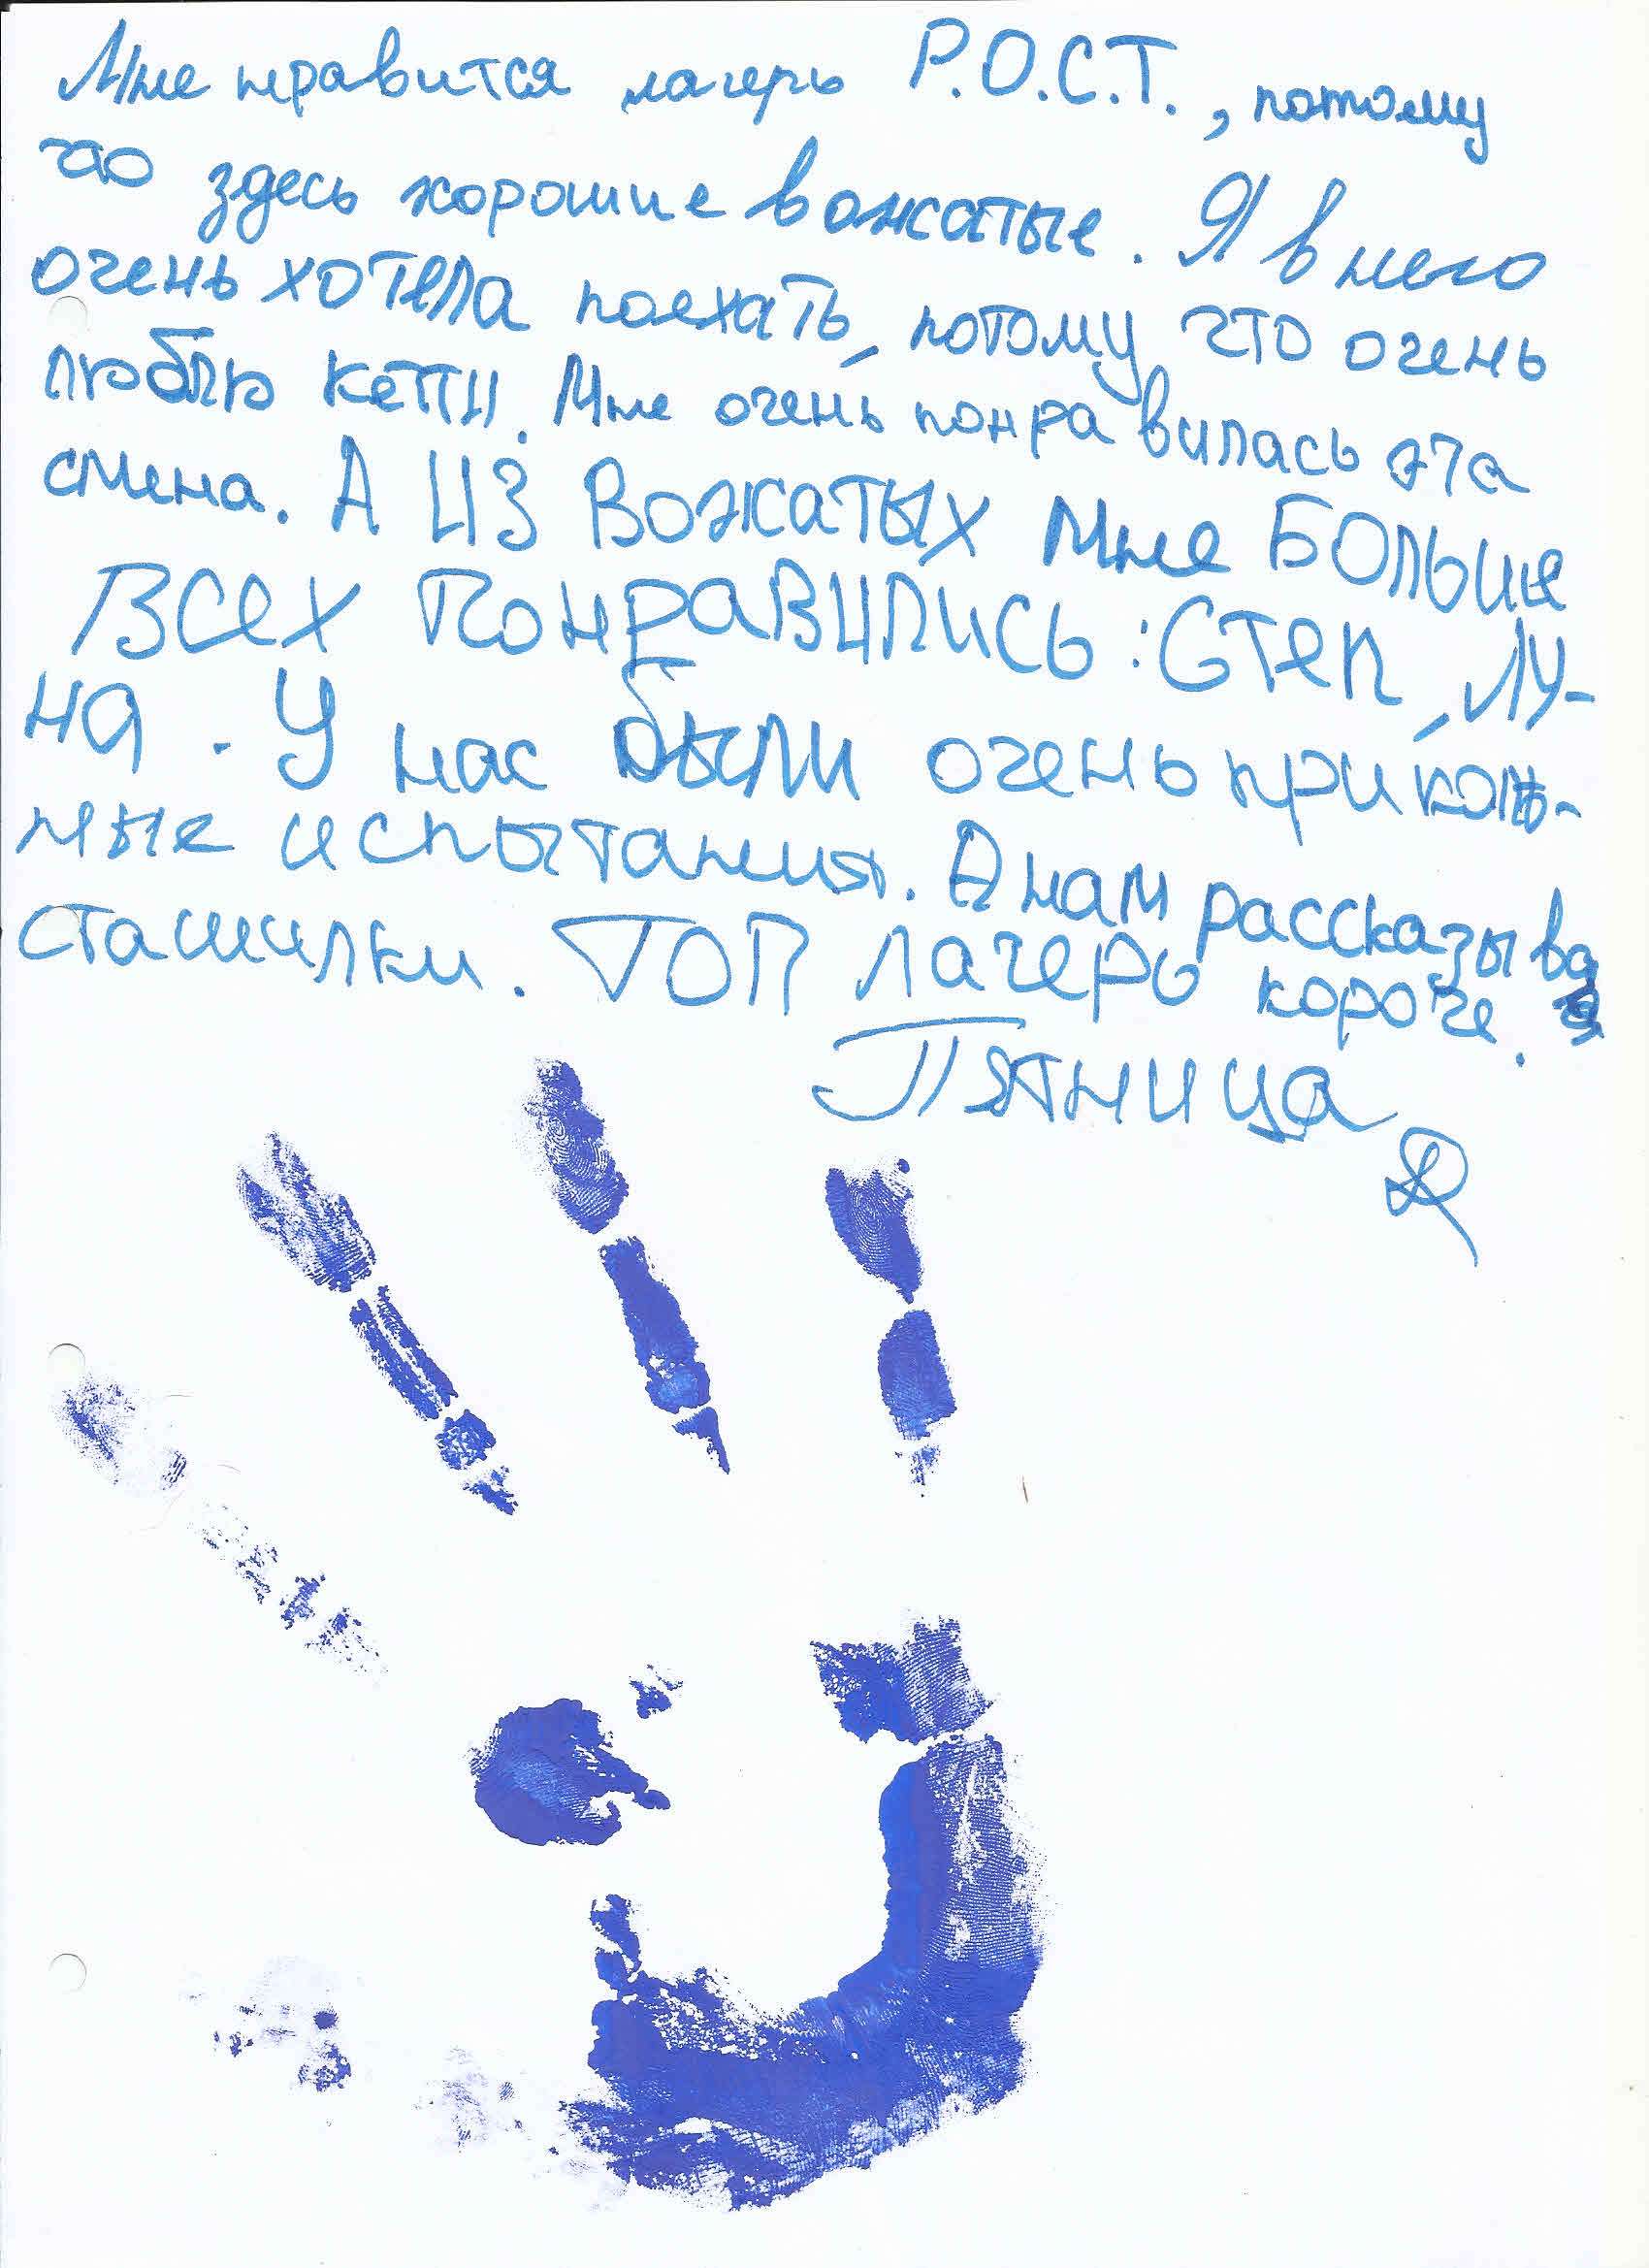 Мне нравится лагерь Р.О.С.Т., потому
что здесь хорошие вожатые. Я в него
очень хотела поехать, потому что очень
люблю Кетти. Мне очень понравилась эта
смена. А из Вожатых мне Больше
Всех Понравились: Степ, Лу-
на. У нас были очень приколь-
ные испытания. А нам рассказыва
сташилки. ТОП лагерь короче.
Пятница